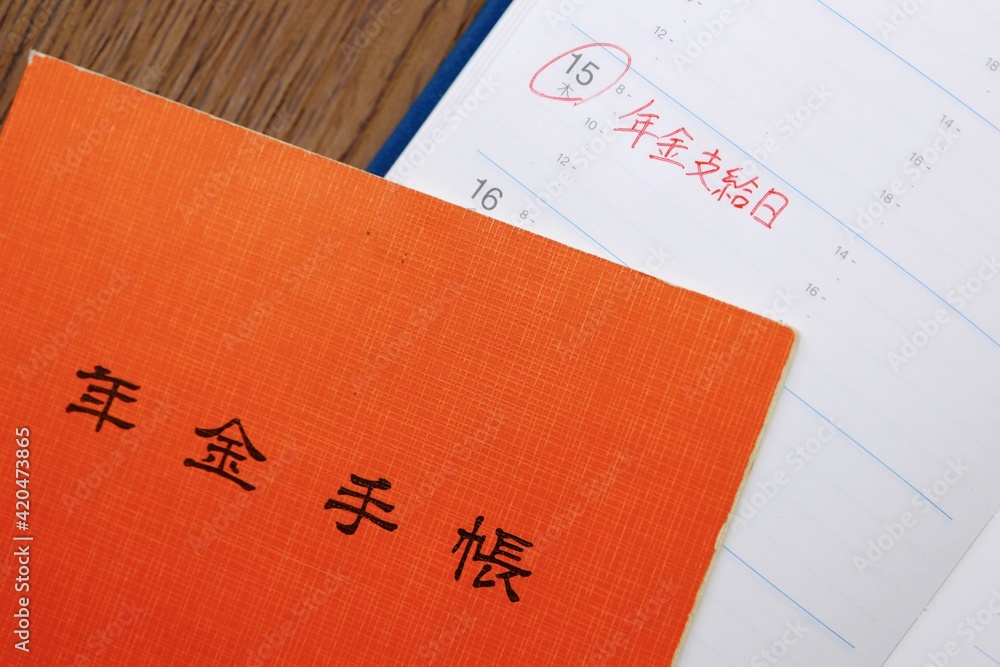 12 -
18 -
15
木
8 -
年金支給日
10 -
14 -
12 -
16 -
16
8 -
18 -
14 -
16 -
年金手帳
Adobe Stock | #420473865